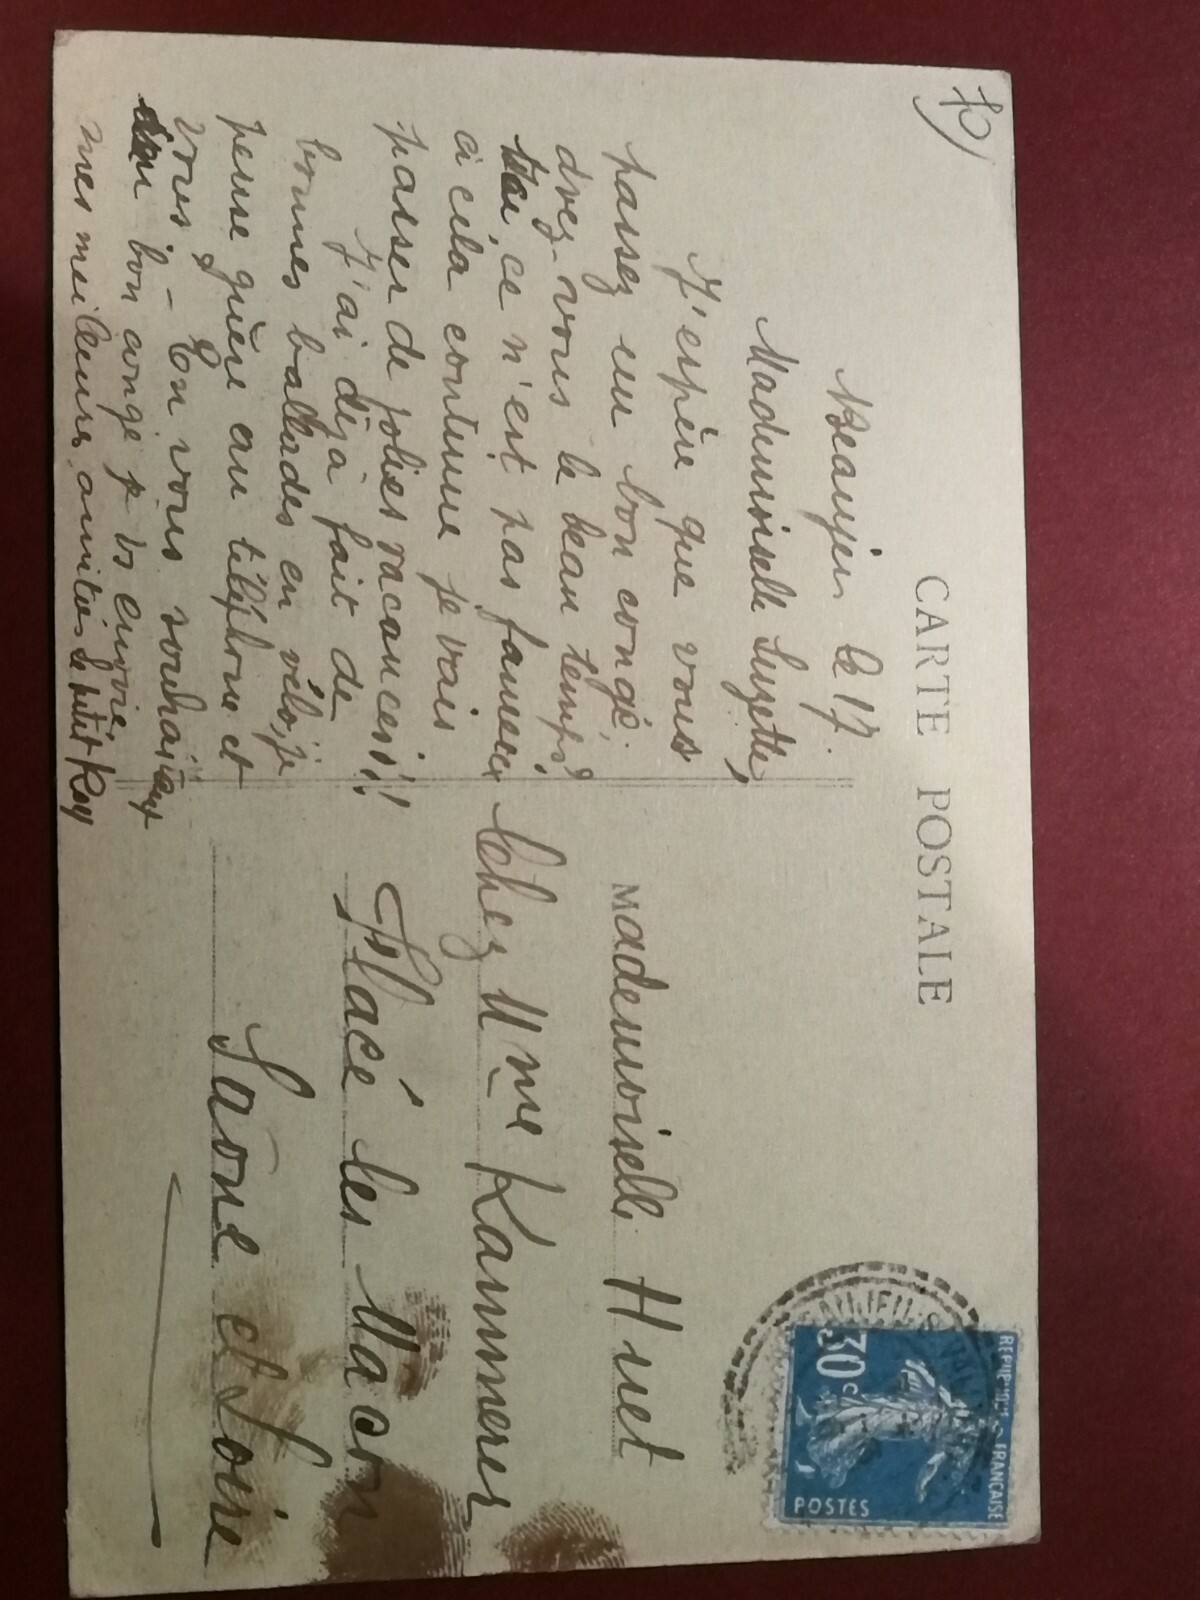 CARTE POSTALE
Beaujeu le 17.
Mademoiselle Suzette,
J'espère que vous
passez un bon congé,
avez-vous le beau temps?
ce n'est pas fameux
si cela continue je vais
passer de jolies vacances!!
J'ai déjà fait de
bonnes ballades en vélo, je
pense guère au téléphone et
vous - En vous souhaitant
un bon congé je vs envoie
mes meilleures amitiés Le petit Roy
Mademoiselle Huet
Chez Mme Kammerer
Flacé les Macon
Saône et Loire
RÉPUBLIQUE FRANÇAISE
30c
POSTES